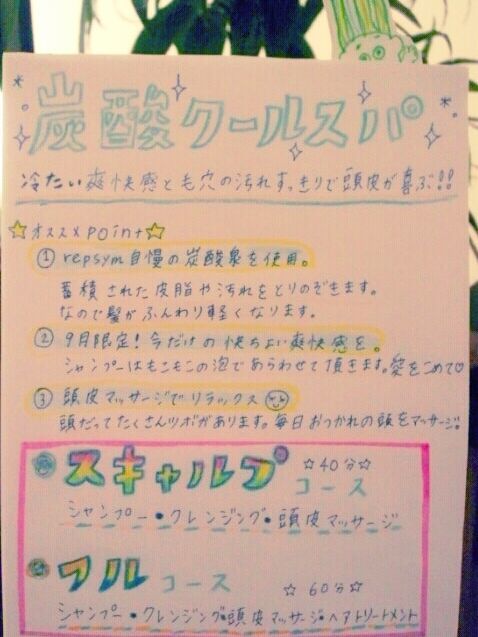 炭酸クールスパ
冷たい爽快感と毛穴の汚れすっきりで頭皮が喜ぶ!!
☆オススメpoint☆
① repsym自慢の炭酸泉を使用。
蓄積された皮脂や汚れをとりのぞきます。
なので髪がふんわり軽くなります。
② 9月限定!今だけの快ちよい爽快感を。
シャンプーはもこもこの泡であらわせて頂きます。愛をこめて♡
③ 頭皮マッサージでリラックス
頭だってたくさんツボがあります。毎日おつかれの頭をマッサージ。
スキャルプ コース ☆40分☆
シャンプー・クレンジング・頭皮マッサージ
フル コース ☆60分☆
シャンプー・クレンジング・頭皮マッサージ・ヘアトリートメント